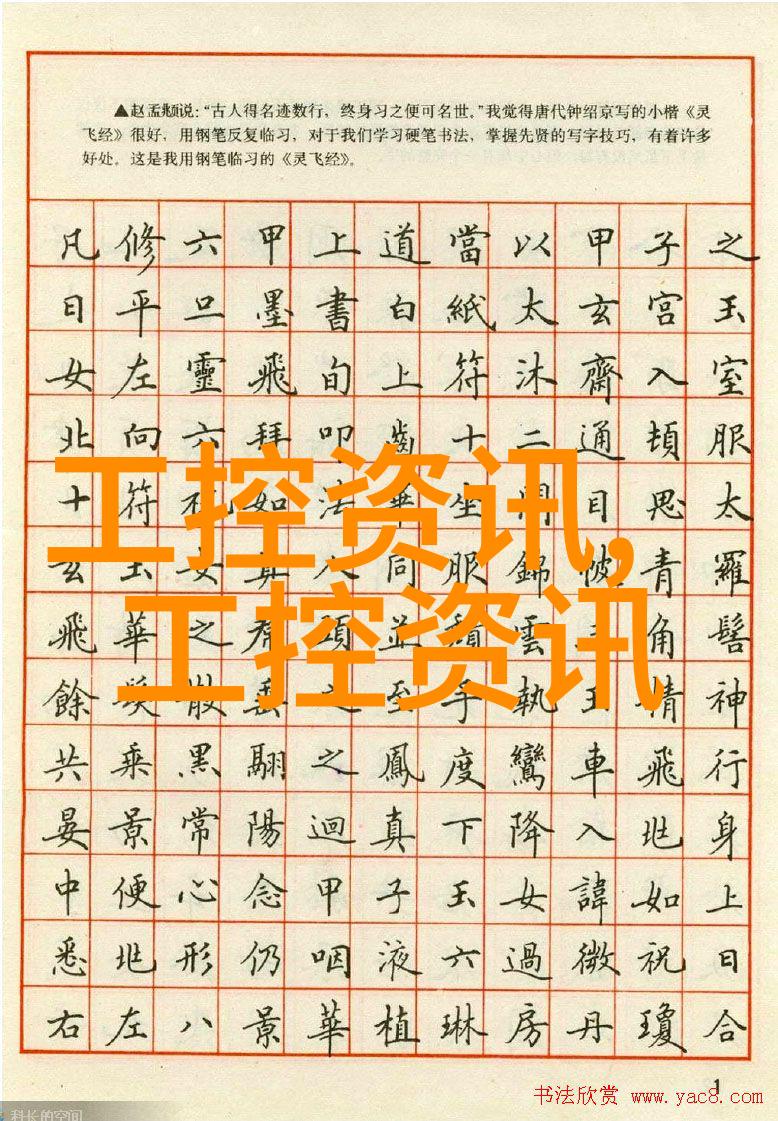 ▲赵孟頫说：“古人得名迹数行，终身习之便可名世。”我觉得唐代钟绍京写的小楷《灵
飞经》很好，用钢笔反复临习，对于我们学习硬笔书法，掌握先贤的写字技巧，有着许多
好处。这是我用钢笔临习的《灵飞经》。
凡修六甲上道當以甲子之
日平旦墨書白紙太玄宮玉
女左靈飛旬上符沐齋入室
北向六拜叩齒十二通頓服
十符祝如法畢坐閉目思太
玄玉女真人同服錦帔青羅
飛華之裙頭並頹雲三角髻
餘髮散垂之至手執玉精神
共乘黑翮之鳳度鸞車飛行
晏景常陽迴真下降入兆身
中便心念甲子玉女諱如上
悉兆形仍咽液六過微祝日
右左八景華植琳房丹瓊合
工控资讯,
工控资讯
1
书法欣赏 www.yac8.com
科长的空间